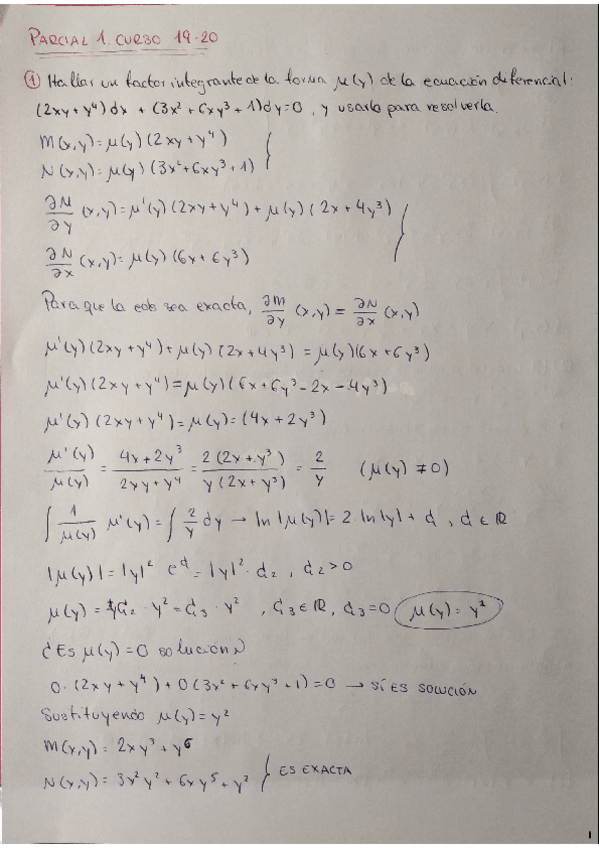 PARCIAL 1. CURSO 19-20
① Hallar un factor integrante de la forma μ(y) de la ecuación diferencial:
(2xy+y⁴)dx + (3x²+6xy³+1)dy=0, y usarlo para resolverla.
M(x,y)=μ(y)(2xy+y⁴)
N(x,y)=μ(y)(3x²+6xy³+1)
∂M/∂y (x,y)=μ'(y)(2xy+y⁴)+μ(y)(2x+4y³)
∂N/∂x (x,y)=μ(y)(6x+6y³)
Para que la edo sea exacta, ∂M/∂y (x,y) = ∂N/∂x (x,y)
μ'(y)(2xy+y⁴)+μ(y)(2x+4y³) = μ(y)(6x+6y³)
μ'(y)(2xy+y⁴)=μ(y)(6x+6y³-2x-4y³)
μ'(y)(2xy+y⁴)=μ(y)=(4x+2y³)
μ'(y)/μ(y) = (4x+2y³)/(2xy+y⁴) = 2(2x+y³)/y(2x+y³) = 2/y (μ(y)≠0)
∫ 1/μ(y) μ'(y)=∫ 2/y dy → ln|μ(y)|=2 ln|y|+ d, d∈ℝ
|μ(y)|=|y|² eᵈ=|y|²·d₂, d₂>0
μ(y)=±d₂·y²=d₃·y², d₃∈ℝ, d₃=0 μ(y)=y²
¿Es μ(y)=0 solución?
0·(2xy+y⁴)+0(3x²+6xy³+1)=0 → SÍ ES SOLUCIÓN
Sustituyendo μ(y)=y²
M(x,y)=2xy³+y⁶
N(x,y)=3x²y²+6xy⁵+y² } ES EXACTA
1